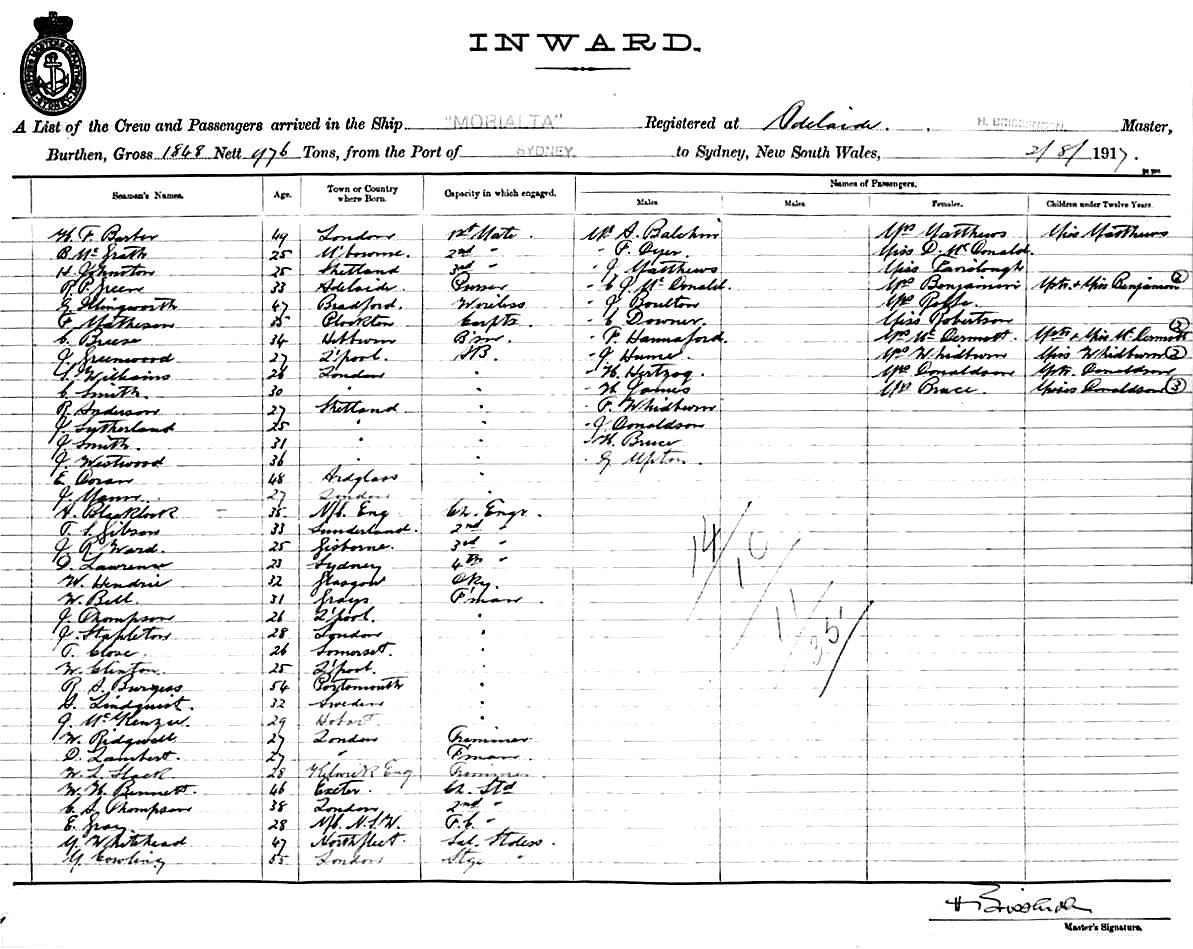 INWARD.
A List of the Crew and Passengers arrived in the Ship "MORIALTA" Registered at Adelaide. , H. Master,
Burthen, Gross 1848 Nett 976 Tons, from the Port of SYDNEY. to Sydney, New South Wales, 2/8/1917.
Names of Passengers.
Seamen's Names. Age. Town or Country where Born. Capacity in which engaged. Males Males Females. Children under Twelve Years.
H. F. Barber 49 London 1st Mate. Mr. S. Balchin Mrs Matthews Miss Matthews
B. McGrath 25 M'bourne. 2nd " - F. Dyer. Miss D. McDonald.
H. Johnston 25 Shetland 3rd " - J. Matthews Miss
R. P. Green 33 Adelaide. Purser - C. J. McDonald. Mrs Benjamin Mstr. & Miss Benjamin 2
E. Illingworth 47 Bradford. Wireless - J. Boulton Mrs
F. Matheson 35 Plockton Carptr. - C Downer. Miss Robertson
C. Breese 34 Hebburn B'sn. - F. Hannaford. Mrs McDermott. Mstr & Miss McDermott 2
J. Greenwood 27 L'pool. AB. - J Hume. Mrs Whidburn Miss Whidburn 2
Williams 26 London " - H. Hertzog. Mrs Donaldson Mstr. Donaldson
C. Smith. 30 " " - H. James Mrs Bruce. Misses Donaldson 3
R. Anderson 27 Shetland " - F. Whidburn
J. Sutherland 25 " " - J. Donaldson
J. Smith. 31 " " - H. Bruce
J. Westwood 36 " " - G. Upton.
E. Doran 48 Ardglass "
J. Mann 27 London "
H. Blacklock 35 N/b. Eng Ch. Engr.
T. S. Gibson 33 Sunderland. 2nd "
J. R. Ward. 25 Gisborne. 3rd "
D. Lawrence 23 Sydney 4th "
W. Hendrie 32 Glasgow Dky.
W. Bell 31 Grays F'man.
J. Thompson 26 L'pool. "
J. Stapleton 28 London "
T. Close. 26 Somerset. "
W. Clinton. 25 L'pool. "
R. S. Burgess 54 Portsmouth "
G. Lindquist. 32 Sweden "
J. McKenzie. 29 Hobart. "
W. Ridgwell 27 London Trimmer
D. Lambert. 27 " F'man.
W. L. Slack. 28 Eng Trimmer
W. H. Bennett. 46 Exeter. Ch. Std
C. S. Thompson 38 London 2nd "
E. Gray 28 N/b. N.S.W. F.C. "
M. Whitehead 47 Northfleet. Sal. Stdess.
M. Cowling 55 London Stge "
14/
10/
11/
35/
Master's Signature.